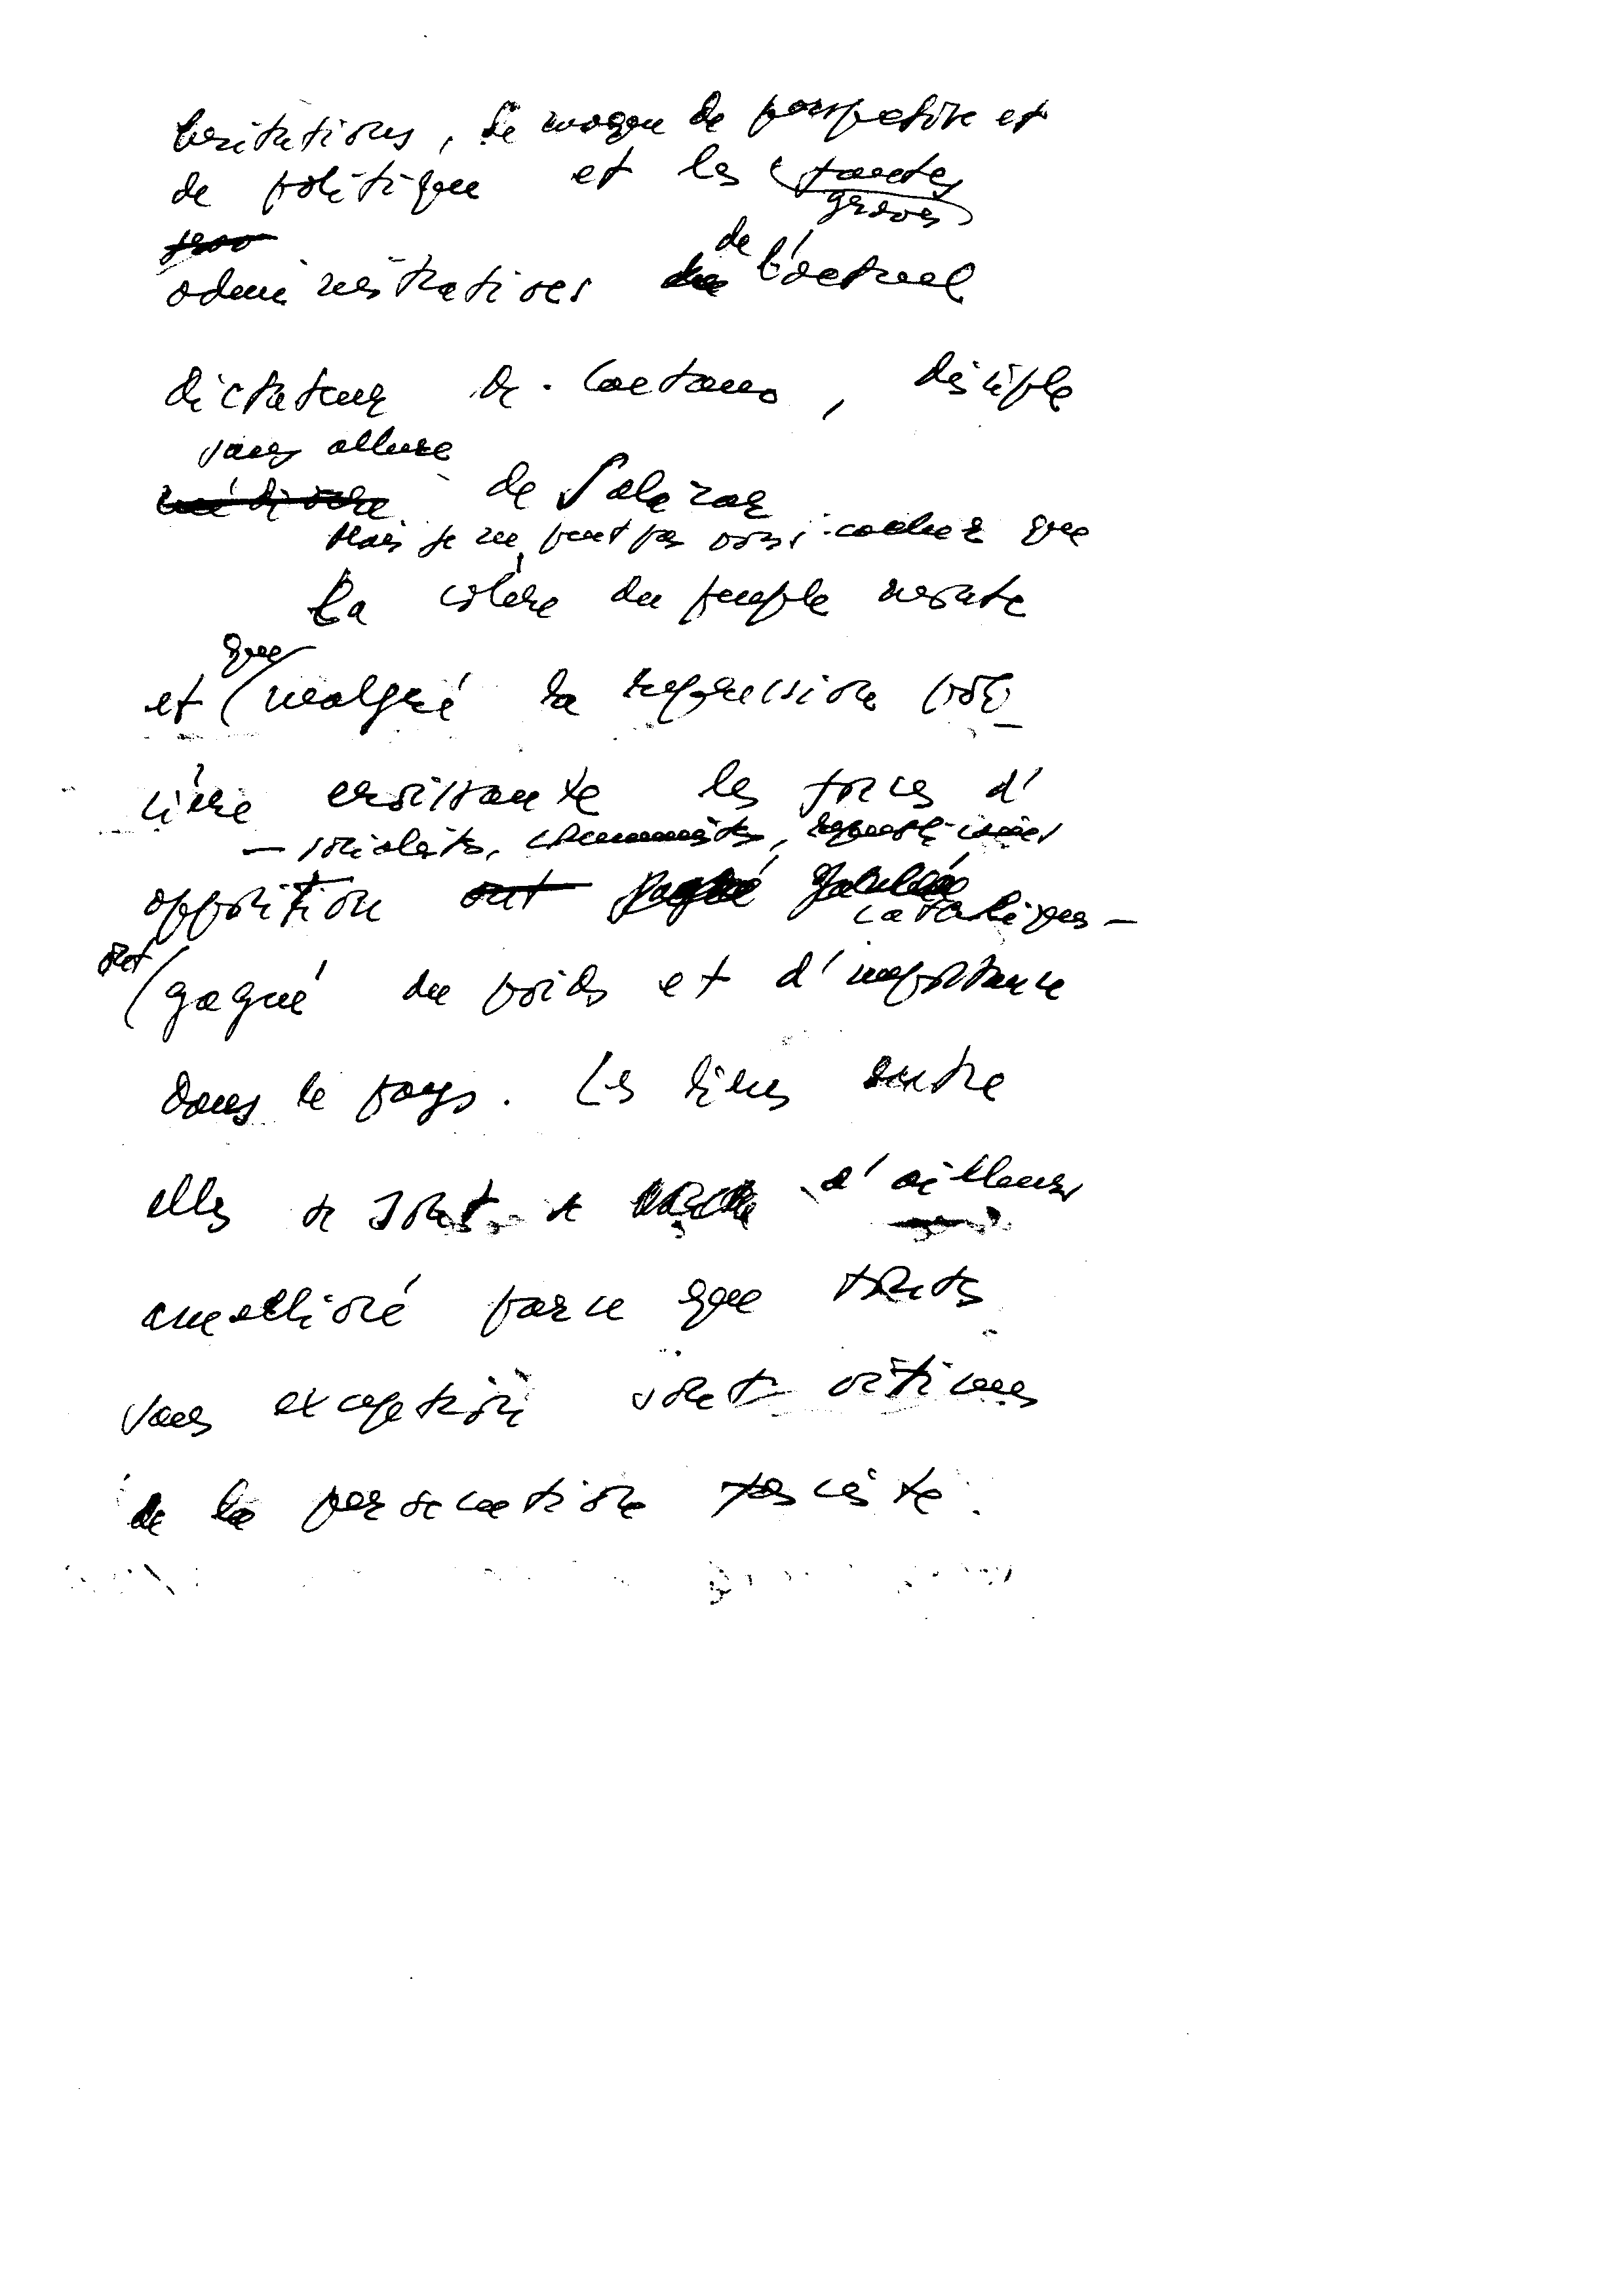 hésitations, le manque de perspective et
de politique et les fautes
graves
de
administratives l'actuel
dictateur Dr. Caetano, disciple
sans allure
de Salazar
Mais je ne peut pas vous cacher que
la colère du peuple monte
que
et malgré la répression poli
cière croissante les forces d'
— socialistes, communistes, républicaines
opposition ont gagné
catholiques —
ont
gagné du poids et d'importance
dans le pays. Les liens entre
elles se sont d'ailleurs
amélioré parce que toutes
sans exception sont victimes
de la persecution fasciste.